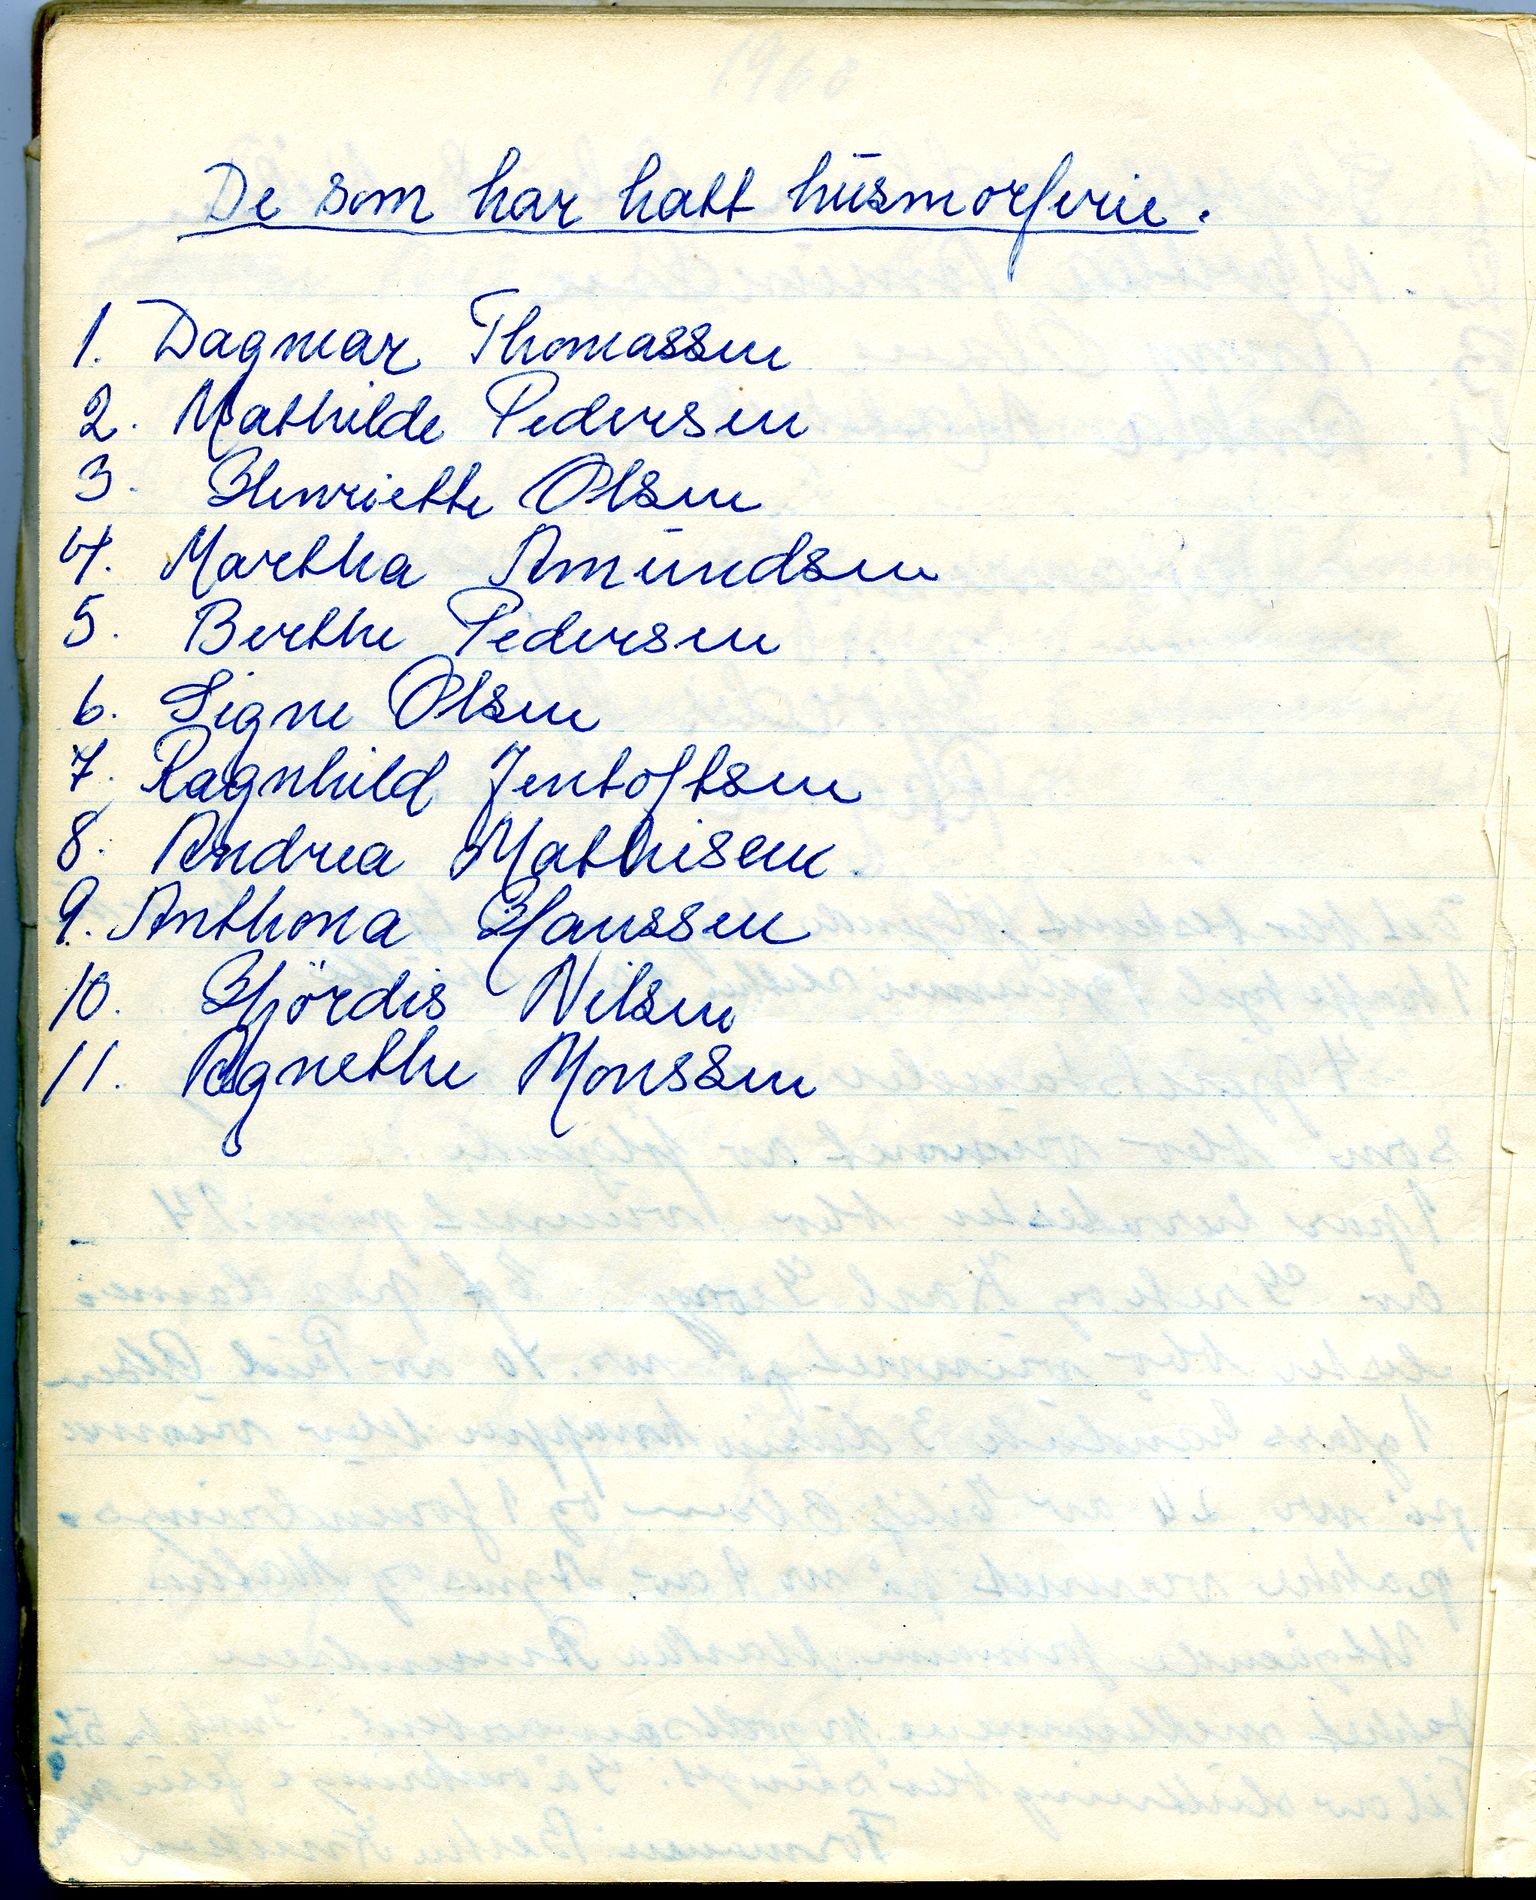 De som har hatt húsmorferie.
1. Dagmar Thomassen
2. Mathilde Pedersen
3. Henriette Olsen
4. Martha Amundsen
5. Berthe Pedersen
6. Signe Olsen
7. Ragnhild Jentoftsen
8. Andrea Mathisen.
9. Anthona Hanssen
10. Hjördis Nilsen
11. Agnethe Monssen